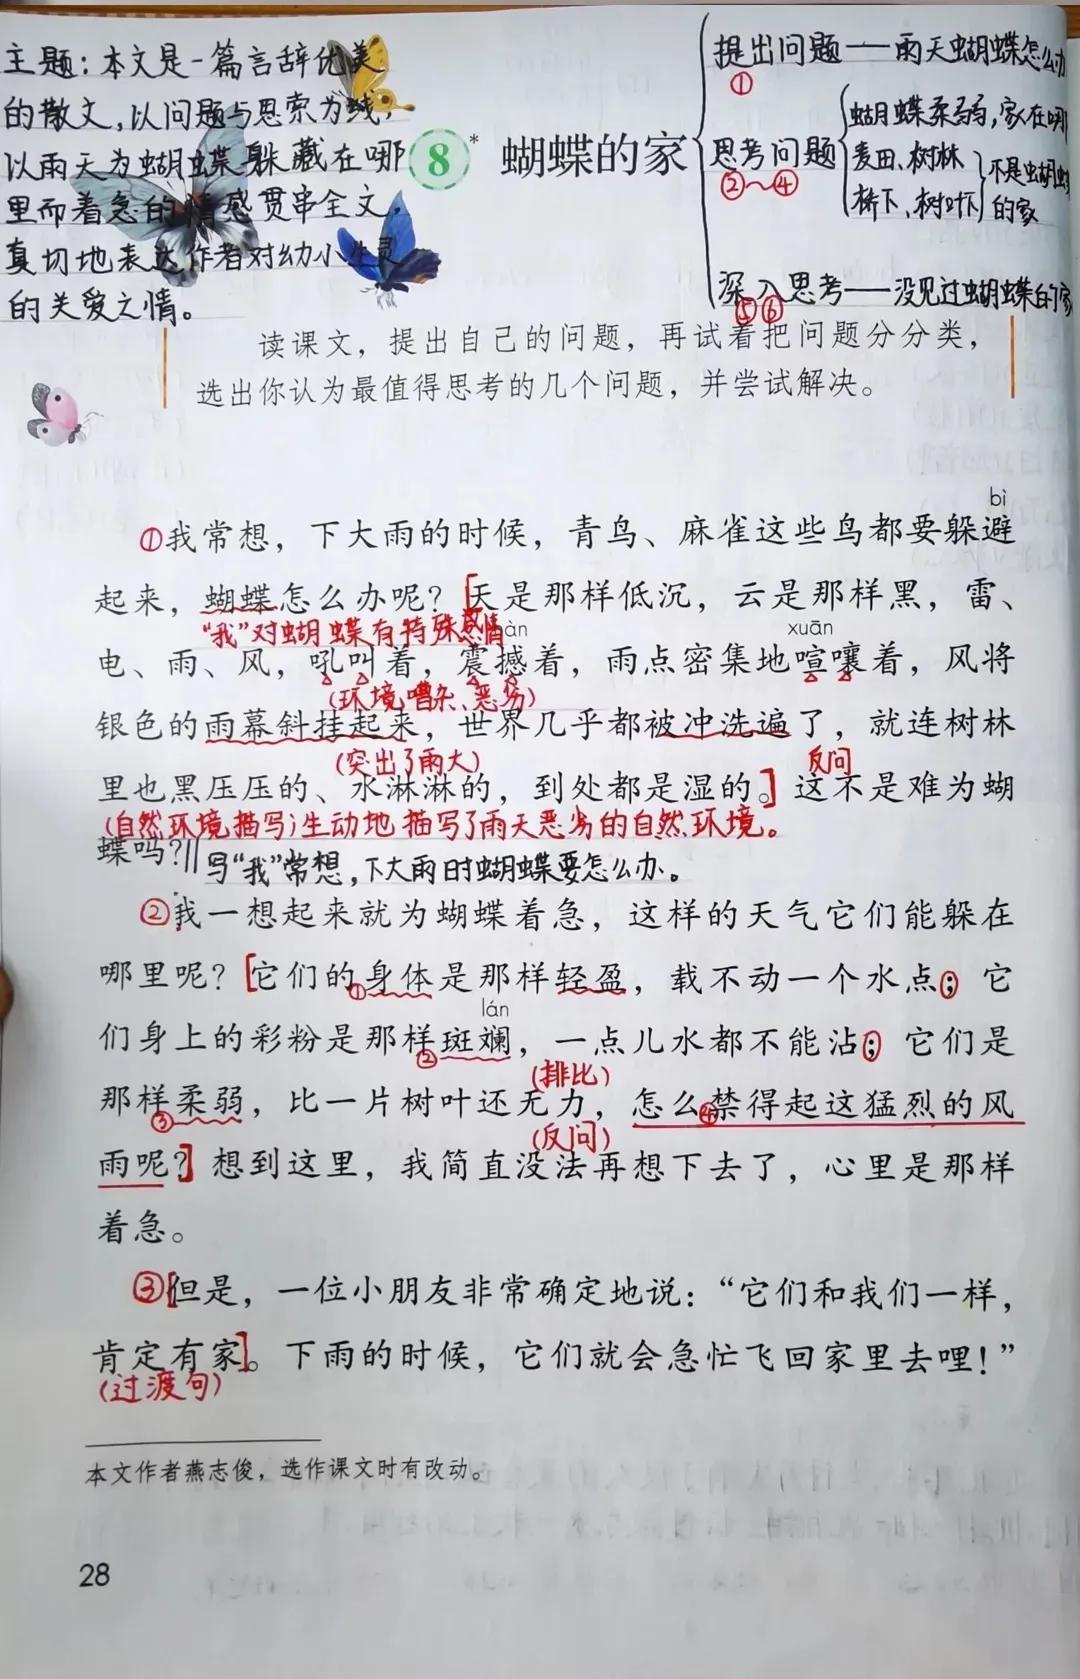 主题：本文是一篇言辞优美
的散文，以问题与思索为线，
以雨天为蝴蝶躲藏在哪
里而着急的情感贯串全文，
真切地表达作者对幼小生灵
的关爱之情。
8* 蝴蝶的家
提出问题——雨天蝴蝶怎么办
①
思考问题
②～④
蝴蝶柔弱，家在哪
麦田、树林
桥下、树叶下
不是蝴蝶
的家
深入思考——没见过蝴蝶的家
⑤⑥
读课文，提出自己的问题，再试着把问题分分类，
选出你认为最值得思考的几个问题，并尝试解决。
bì
①我常想，下大雨的时候，青鸟、麻雀这些鸟都要躲避
起来，蝴蝶怎么办呢？[天是那样低沉，云是那样黑，雷、
“我”对蝴蝶有特殊感情
xuān
电、雨、风，吼叫着，震撼着，雨点密集地喧嚷着，风将
（环境嘈杂、恶劣）
银色的雨幕斜挂起来，世界几乎都被冲洗遍了，就连树林
（突出了雨大）
反问
里也黑压压的、水淋淋的，到处都是湿的。]这不是难为蝴
（自然环境描写）生动地描写了雨天恶劣的自然环境。
蝶吗？‖
写“我”常想，下大雨时蝴蝶要怎么办。
②我一想起来就为蝴蝶着急，这样的天气它们能躲在
哪里呢？[它们的①身体是那样轻盈，载不动一个水点；它
lán
们身上的彩粉是那样②斑斓，一点儿水都不能沾；它们是
（排比）
那样③柔弱，比一片树叶还无力，怎么④禁得起这猛烈的风
（反问）
雨呢？]想到这里，我简直没法再想下去了，心里是那样
着急。
③[但是，一位小朋友非常确定地说：“它们和我们一样，
肯定有家]。下雨的时候，它们就会急忙飞回家里去哩！”
（过渡句）
本文作者燕志俊，选作课文时有改动。
28